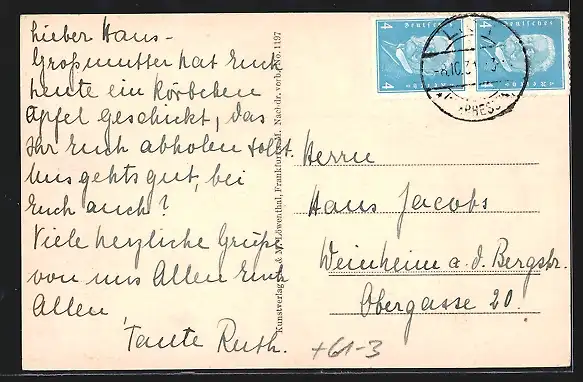 Lieber Hans -
Großmutter hat Euch
heute ein Körbchen
Äpfel geschickt, das
Ihr Euch abholen sollt.
Uns gehts gut, bei
Euch auch?
Viele herzliche Grüße
von uns Allen Euch
Allen
Tante Ruth.
Kunstverlag & M. Löwenthal, Frankfurt a. M. Nachdr. verb. No. 1197
4 Deutsches
4
Reich
4 Deutsches
4
Reich
8.10.31
Herrn
Hans Jacobs
Weinheim a. d. Bergstr.
Obergasse 20.
+61-3